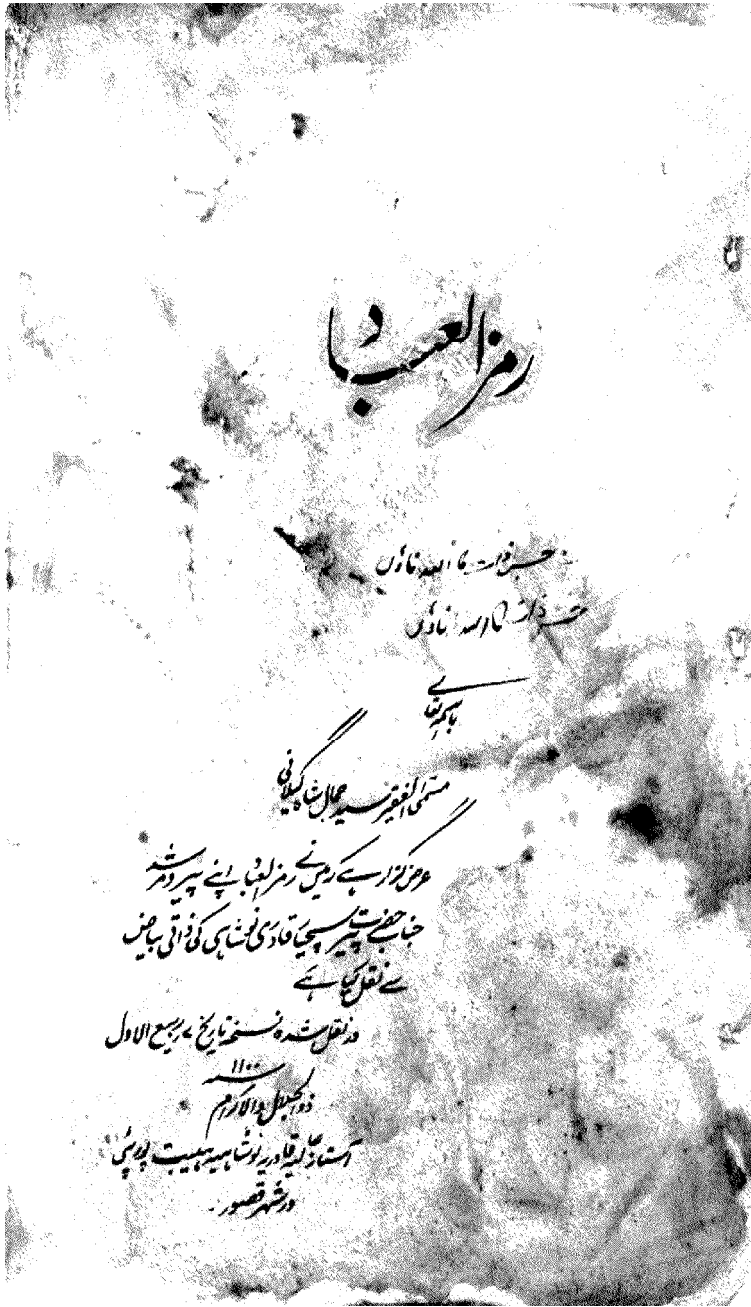 رمز العباد
باسمہٖ تعالےٰ
الفقیر سید جمال شاہ گیلانی
عرض گزار ہے کہ میں نے رمز العباد اپنے پیر و مرشد
جناب حضرت پیر قادری نوشاہی کی ذاتی بیاض
سے نقل کیا ہے
نقل شدہ نسخہ تاریخ ۷ ربیع الاول
۱۱۰۰
ذوالجلال والاکرام
آستانہ عالیہ قادریہ نوشاہیہ
در شہر قصور۔